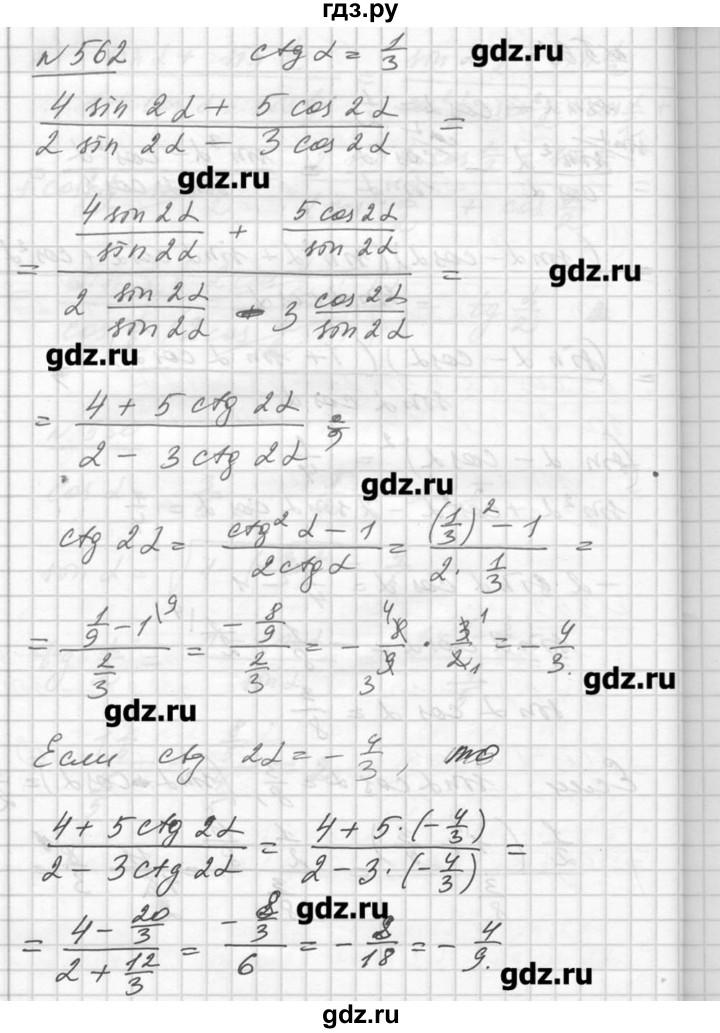 гдз.ру
№ 562 ctg α = 1/3 gdz.ru
(4 sin 2α + 5 cos 2α)/(2 sin 2α − 3 cos 2α) =
gdz.ru
= (4 sin 2α/sin 2α + 5 cos 2α/sin 2α)/(2 sin 2α/sin 2α − 3 cos 2α/sin 2α) = gdz.ru
gdz.ru
= (4 + 5 ctg 2α)/(2 − 3 ctg 2α) ;
gdz.ru
ctg 2α = (ctg² α − 1)/(2 ctg α) = ((1/3)² − 1)/(2 · 1/3) =
= (1/9 − 1\9)/(2/3) = (−8/9)/(2/3) = − 8/9 · 3/2 = − 4/3. gdz.ru
gdz.ru
Если ctg 2α = − 4/3, то
(4 + 5 ctg 2α)/(2 − 3 ctg 2α) = (4 + 5 · (−4/3))/(2 − 3 · (−4/3)) =
gdz.ru
= (4 − 20/3)/(2 + 12/3) = (−8/3)/6 = − 8/18 = − 4/9.
gdz.ru
gdz.ru